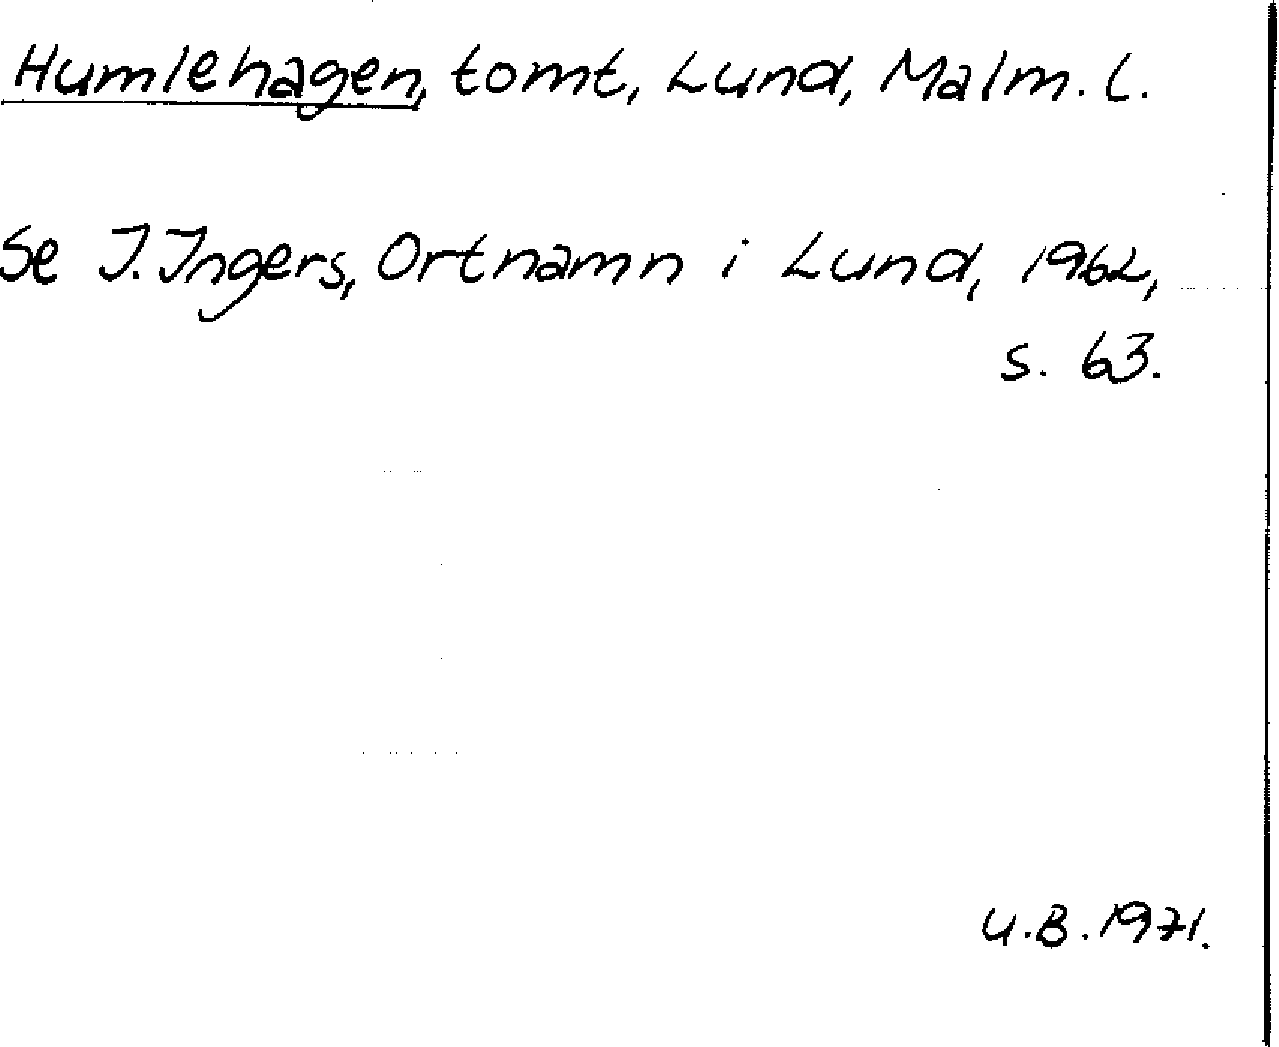 Humlehagen, tomt, Lund, Malm. l.
Se I. Ingers, Ortnamn i Lund, 1962,
s. 63.
U.B. 1971.